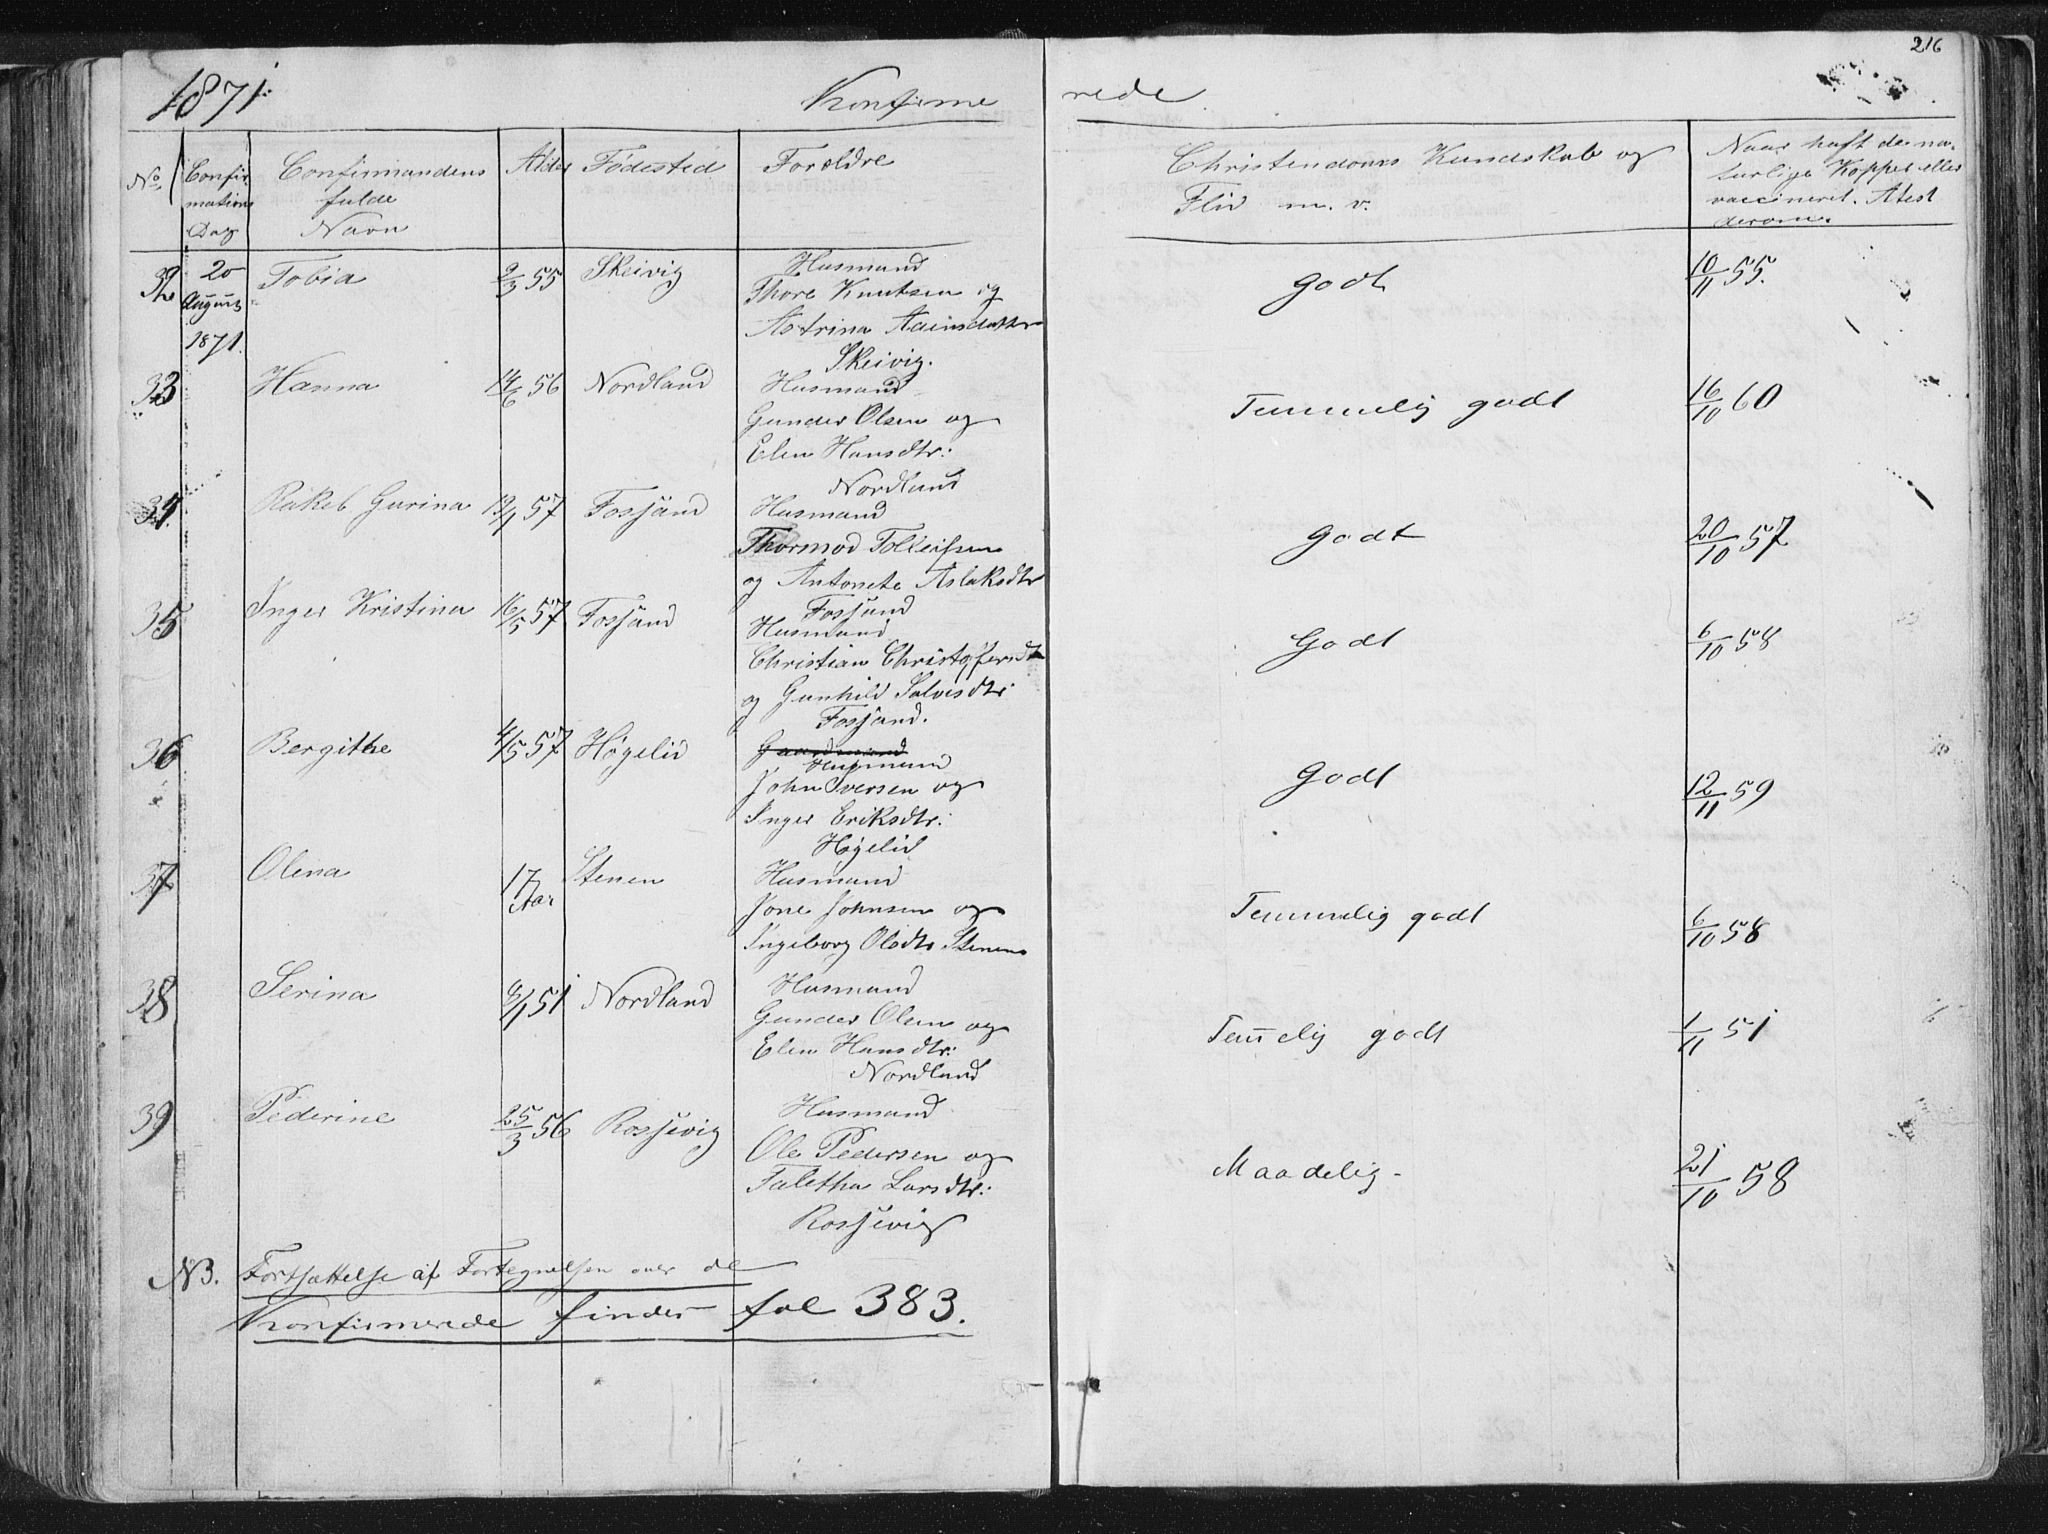 216
1871.
Konfirme rede
No
Confir-
mations
Dag
Confirmandens
fulde
Navn
Alder
Fødested
Forældre
Christendoms Kundskab og
Flid m. v.
Naar haft de na-
turlige Kopper eller
vaccineret. Atest
derom.
32
20
August
1871.
Tobia
2/3 55
Skeivig
Husmand
Thore Knutsen og
Astrina
Skeivig.
Godt
10/11 55.
33
Hanna
14/6 56
Nordland
Husmand
Gunder Olsen og
Elen Hansdtr:
Nordland
Temmelig godt
16/10 60
34
Rakel Gurina
19/1 57
Fosjand
Husmand
Thormod Tolleifsen
og Antonete Aslaksdtr
Fosjand
Godt
20/10 57
35
Inger Kristina
16/5 57
Fosjand
Husmand
Christian Christoffersdt
og Gunhild Salvesdtr:
Fosjand.
Godt
6/10 58
36
Bergithe
4/5 57
Høgelid
Gaardmand
Husmand
John Iversen og
Inger Eriksdtr:
Høgelid
Godt
12/11 59
37
Olena
17
Aar
Stenen
Husmand
Jone Johnsen og
Ingeborg Olsdtr Stenen
Temmelig godt
6/10 58
38
Serina
51
Nordland
Husmand
Gunder Olsen og
Elen Hansdtr:
Nordland
Tem̅elig godt
1/11 51
39
Pederine
25/3 56
Rossevig
Husmand
Ole Pedersen og
Taletha Larsdtr:
Rossevig
Maadelig-
21/10 58
NB. Fortsættelse af Fortegnelsen over de
Konfirmerede findes fol 383.